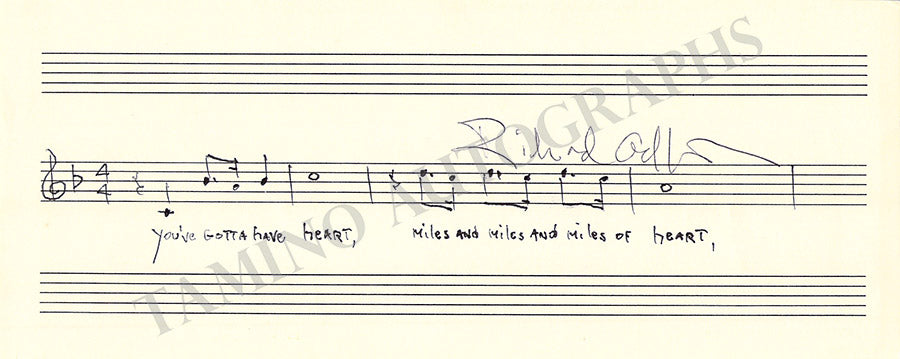 Richard Adler
4
4
You've GOTTA HAVE HEART, MiLES AND MiLES AND MiLES OF HEART,
TAMINO AUTOGRAPHS